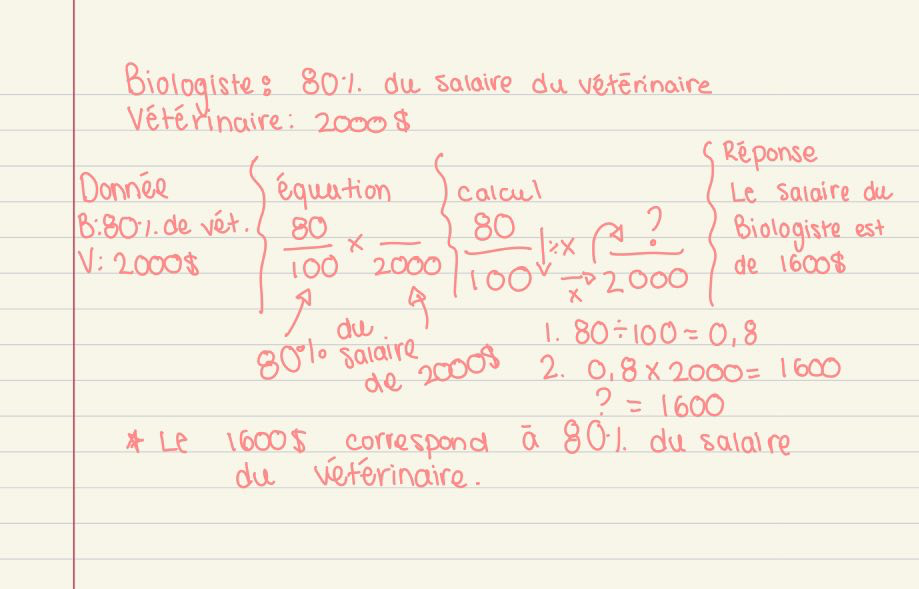 Biologiste : 80 % du salaire du vétérinaire
Vétérinaire : 2000 $
Donnée
B: 80 % de vét.
V: 2000$
équation
80
100
x
2000
80% du salaire de 2000$
calcul
80
100
÷ x
x
?
2000
1. 80 ÷ 100 = 0,8
2. 0,8 x 2000 = 1600
? = 1600
Réponse
Le salaire du
Biologiste est
de 1600$
* Le 1600$ correspond à 80 % du salaire
du vétérinaire.